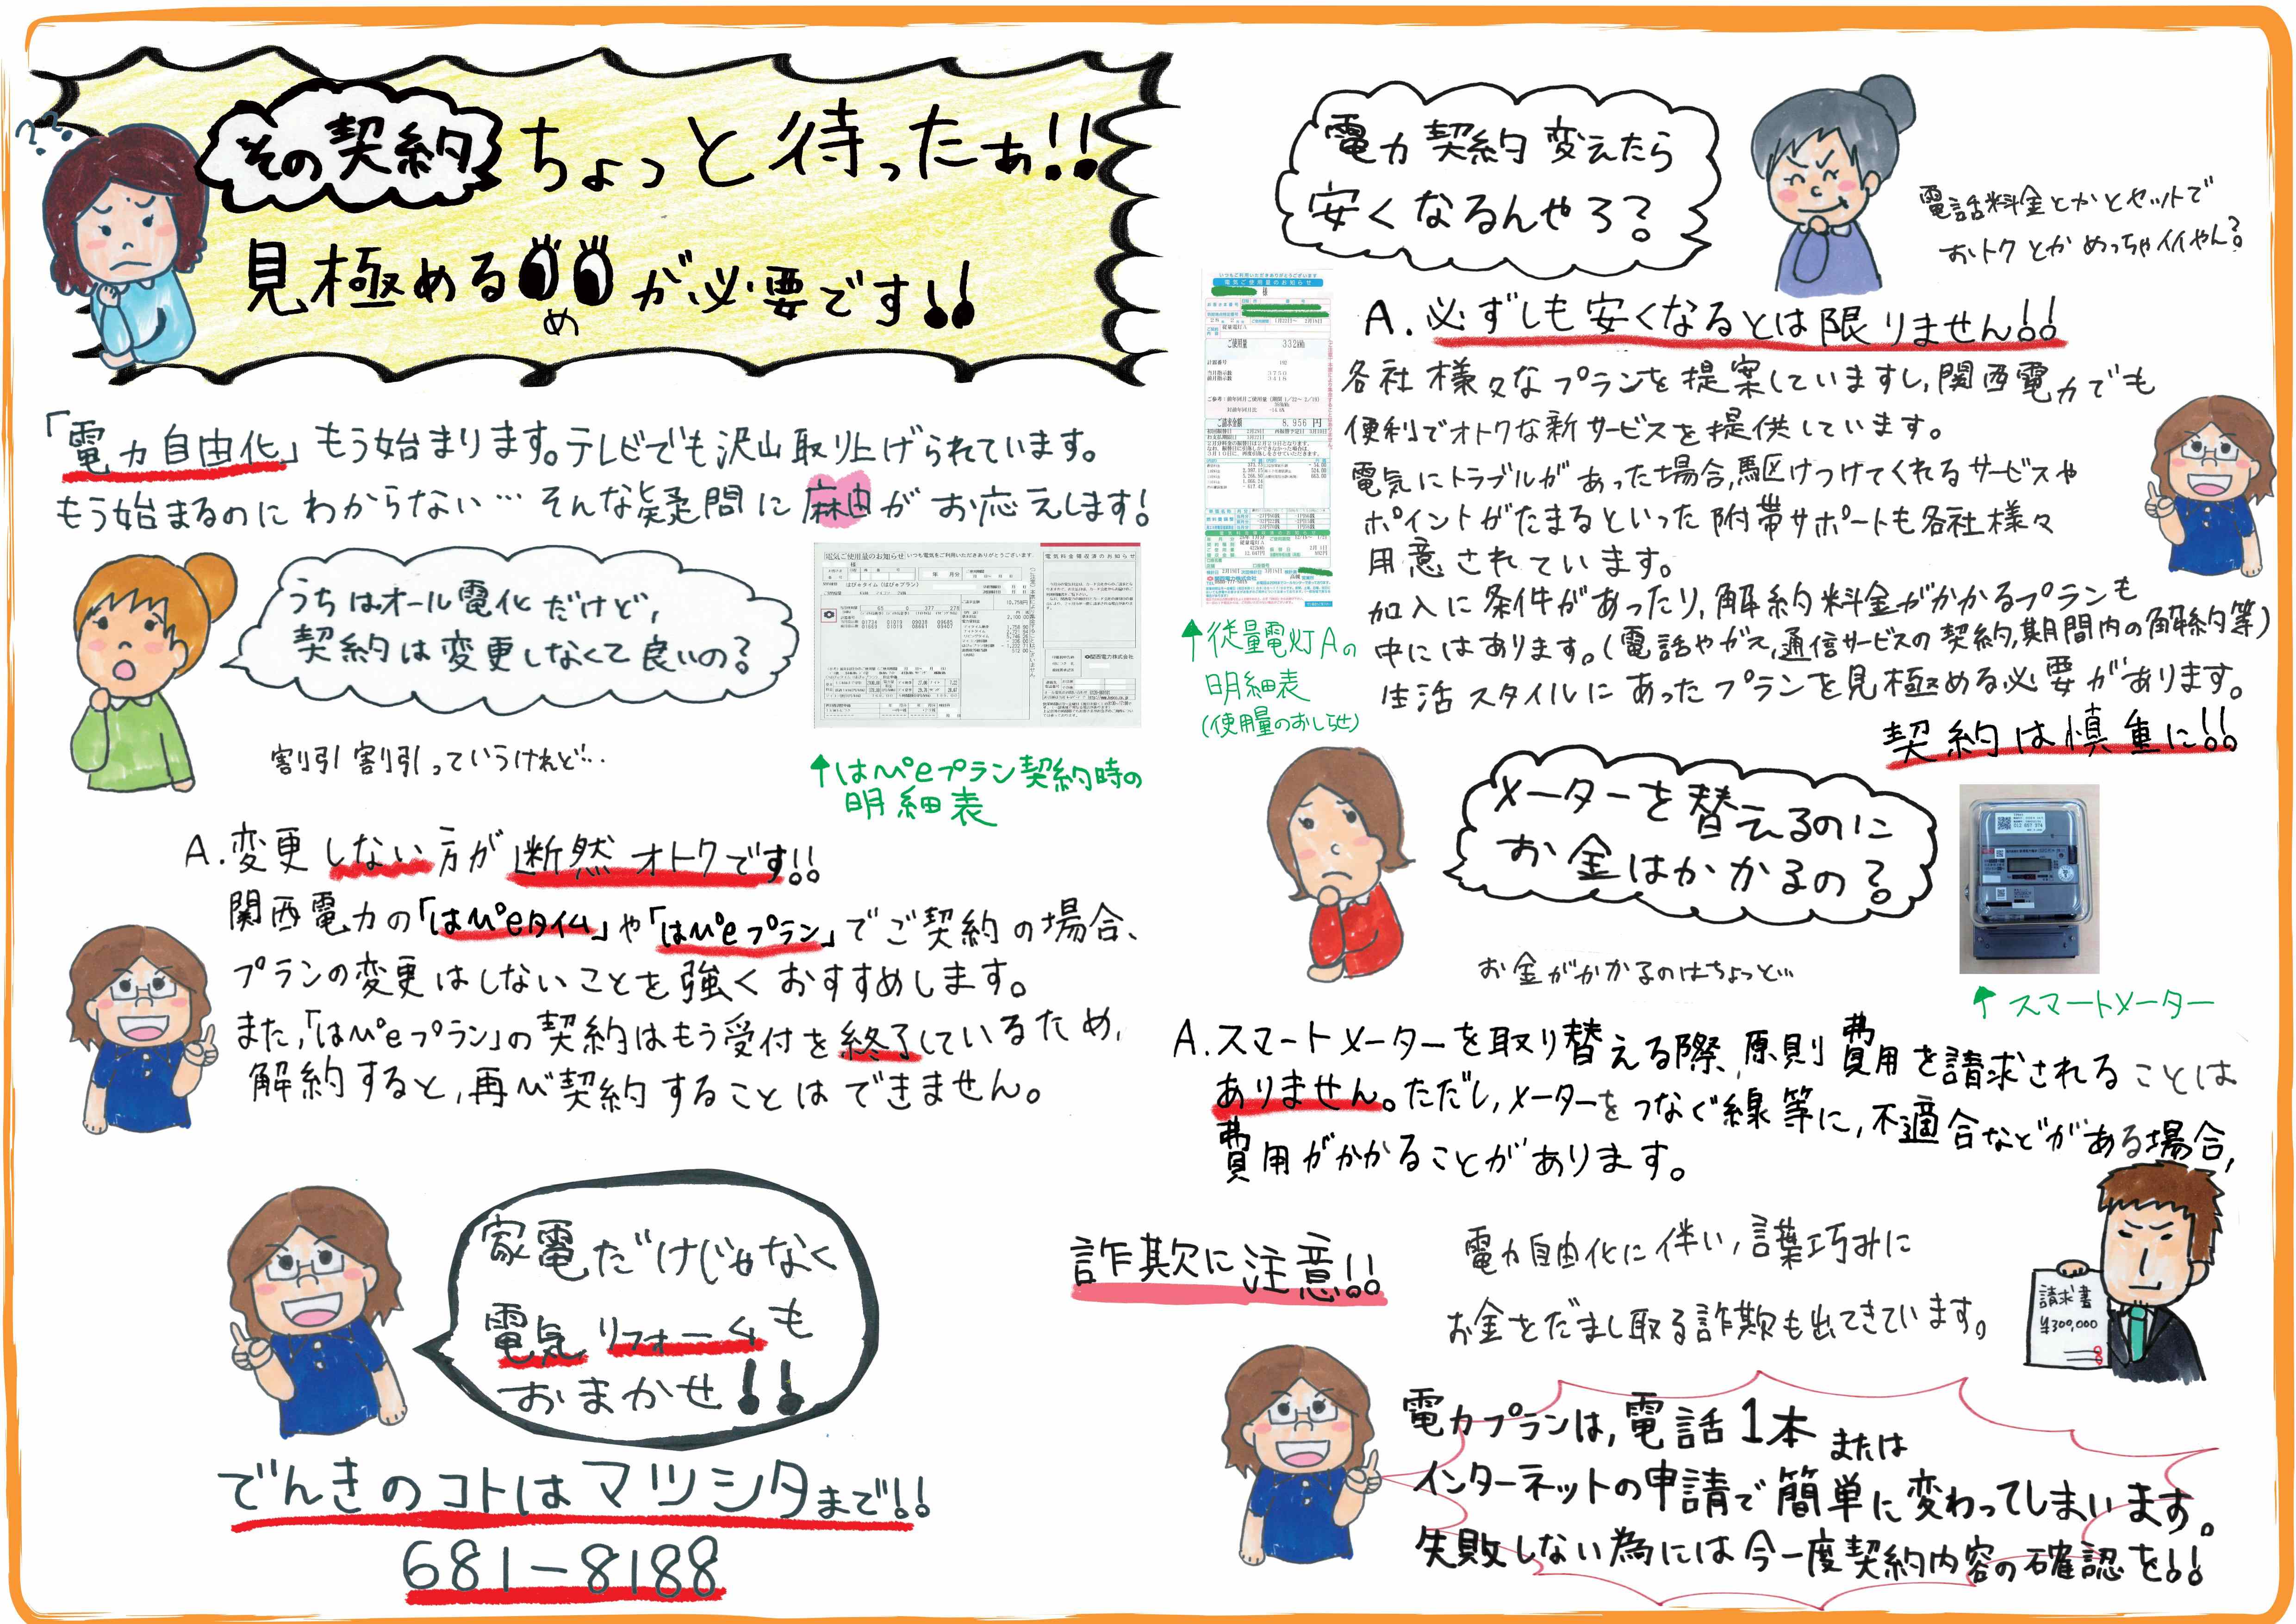 ??
その契約 ちょっと待ったぁ!!
見極める
め
が必要です!!
「電力自由化」もう始まります。テレビでも沢山取り上げられています。
もう始まるのにわからない… そんな疑問に麻由がお応えします!
うちはオール電化だけど、
契約は変更しなくて良いの?
割引割引っていうけれど…
電気ご使用量のお知らせ いつも電気をご利用いただきありがとうございます。
電気料金領収済のお知らせ
はぴeタイム(はぴeプラン)
10,758円
関西電力株式会社
↑はぴeプラン契約時の
明細表
A.変更しない方が断然オトクです!!
関西電力の「はぴeタイム」や「はぴeプラン」でご契約の場合、
プランの変更はしないことを強くおすすめします。
また、「はぴeプラン」の契約はもう受付を終了しているため、
解約すると、再び契約することはできません。
家電だけじゃなく
電気リフォームも
おまかせ!!
でんきのコトはマツシタまで!!
681-8188
電力契約変えたら
安くなるんやろ?
電話料金とかとセットで
おトクとかめっちゃイイやん?
いつもご利用ありがとうございます
電気ご使用量のお知らせ
様
従量電灯A
ご使用量 332kWh
ご請求金額 8,956円
関西電力株式会社
↑従量電灯Aの
明細表
(使用量のおしらせ)
A.必ずしも安くなるとは限りません!!
各社様々なプランを提案していますし、関西電力でも
便利でオトクな新サービスを提供しています。
電気にトラブルがあった場合、駆けつけてくれるサービスや
ポイントがたまるといった附帯サポートも各社様々
用意されています。
加入に条件があったり、解約料金がかかるプランも
中にはあります。(電話やガス、通信サービスの契約、期間内の解約等)
生活スタイルにあったプランを見極める必要があります。
契約は慎重に!!
メーターを替えるのに
お金はかかるの?
お金がかかるのはちょっと…
↑スマートメーター
A.スマートメーターを取り替える際、原則費用を請求されることは
ありません。ただし、メーターをつなぐ線等に、不適合などがある場合、
費用がかかることがあります。
詐欺に注意!!
電力自由化に伴い、言葉巧みに
お金をだまし取る詐欺も出てきています。
請求書
¥300,000
電力プランは、電話1本または
インターネットの申請で簡単に変わってしまいます。
失敗しない為には今一度契約内容の確認を!!